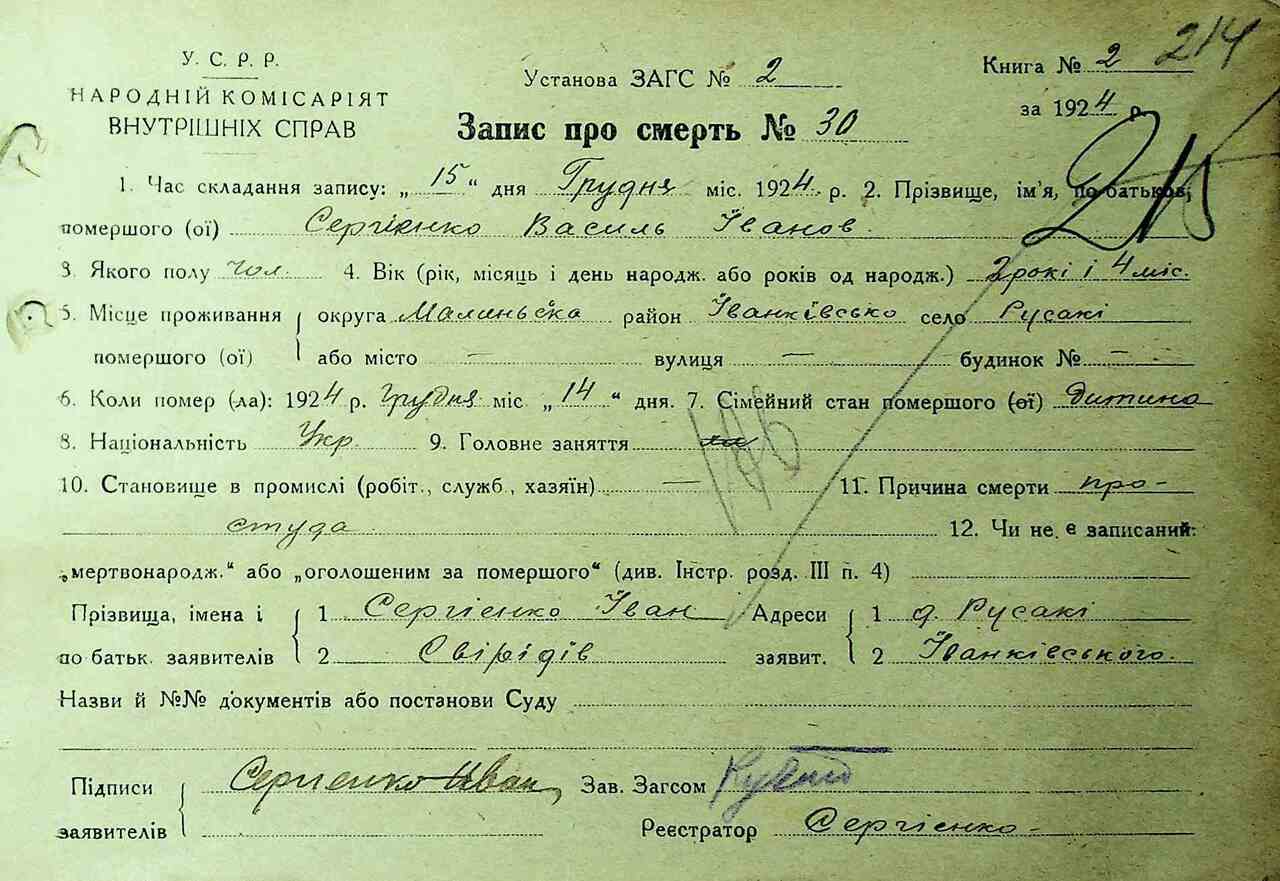 У. С. Р. Р.
НАРОДНІЙ КОМІСАРІЯТ
ВНУТРІШНІХ СПРАВ
Установа ЗАГС № 2
Книга № 2 214
за 1924 р.
Запис про смерть № 30
215
1. Час складання запису: „15“ дня Грудня міс. 1924. р. 2. Прізвище, ім'я, по батьков,
помершого (ої) Сергієнко Василь Іванов.
3. Якого полу чол. 4. Вік (рік, місяць і день народж. або років од народж.) 2 рокі і 4 міс.
5. Місце проживання округа Малиньска район Іванківсько село Русакі
помершого (ої) або місто — вулиця — будинок № —
6. Коли помер (ла): 1924 р. грудня міс „14“ дня. 7. Сімейний стан помершого (ої) Дитина
8. Національність Укр. 9. Головне заняття
10. Становище в промислі (робіт., служб., хазяїн) — 11. Причина смерти про-
студа 12. Чи не є записаний:
„мертвонародж.“ або „оголошеним за помершого“ (див. Інстр. розд. III п. 4)
Прізвища, імена і 1 Сергієнко Іван Адреси 1 д. Русакі
по батьк. заявителів 2 Свірідів заявит. 2 Іванківського.
Назви й №№ документів або постанови Суду
Підписи Сергиенко Иван Зав. Загсом
заявителів Реєстратор Сергієнко